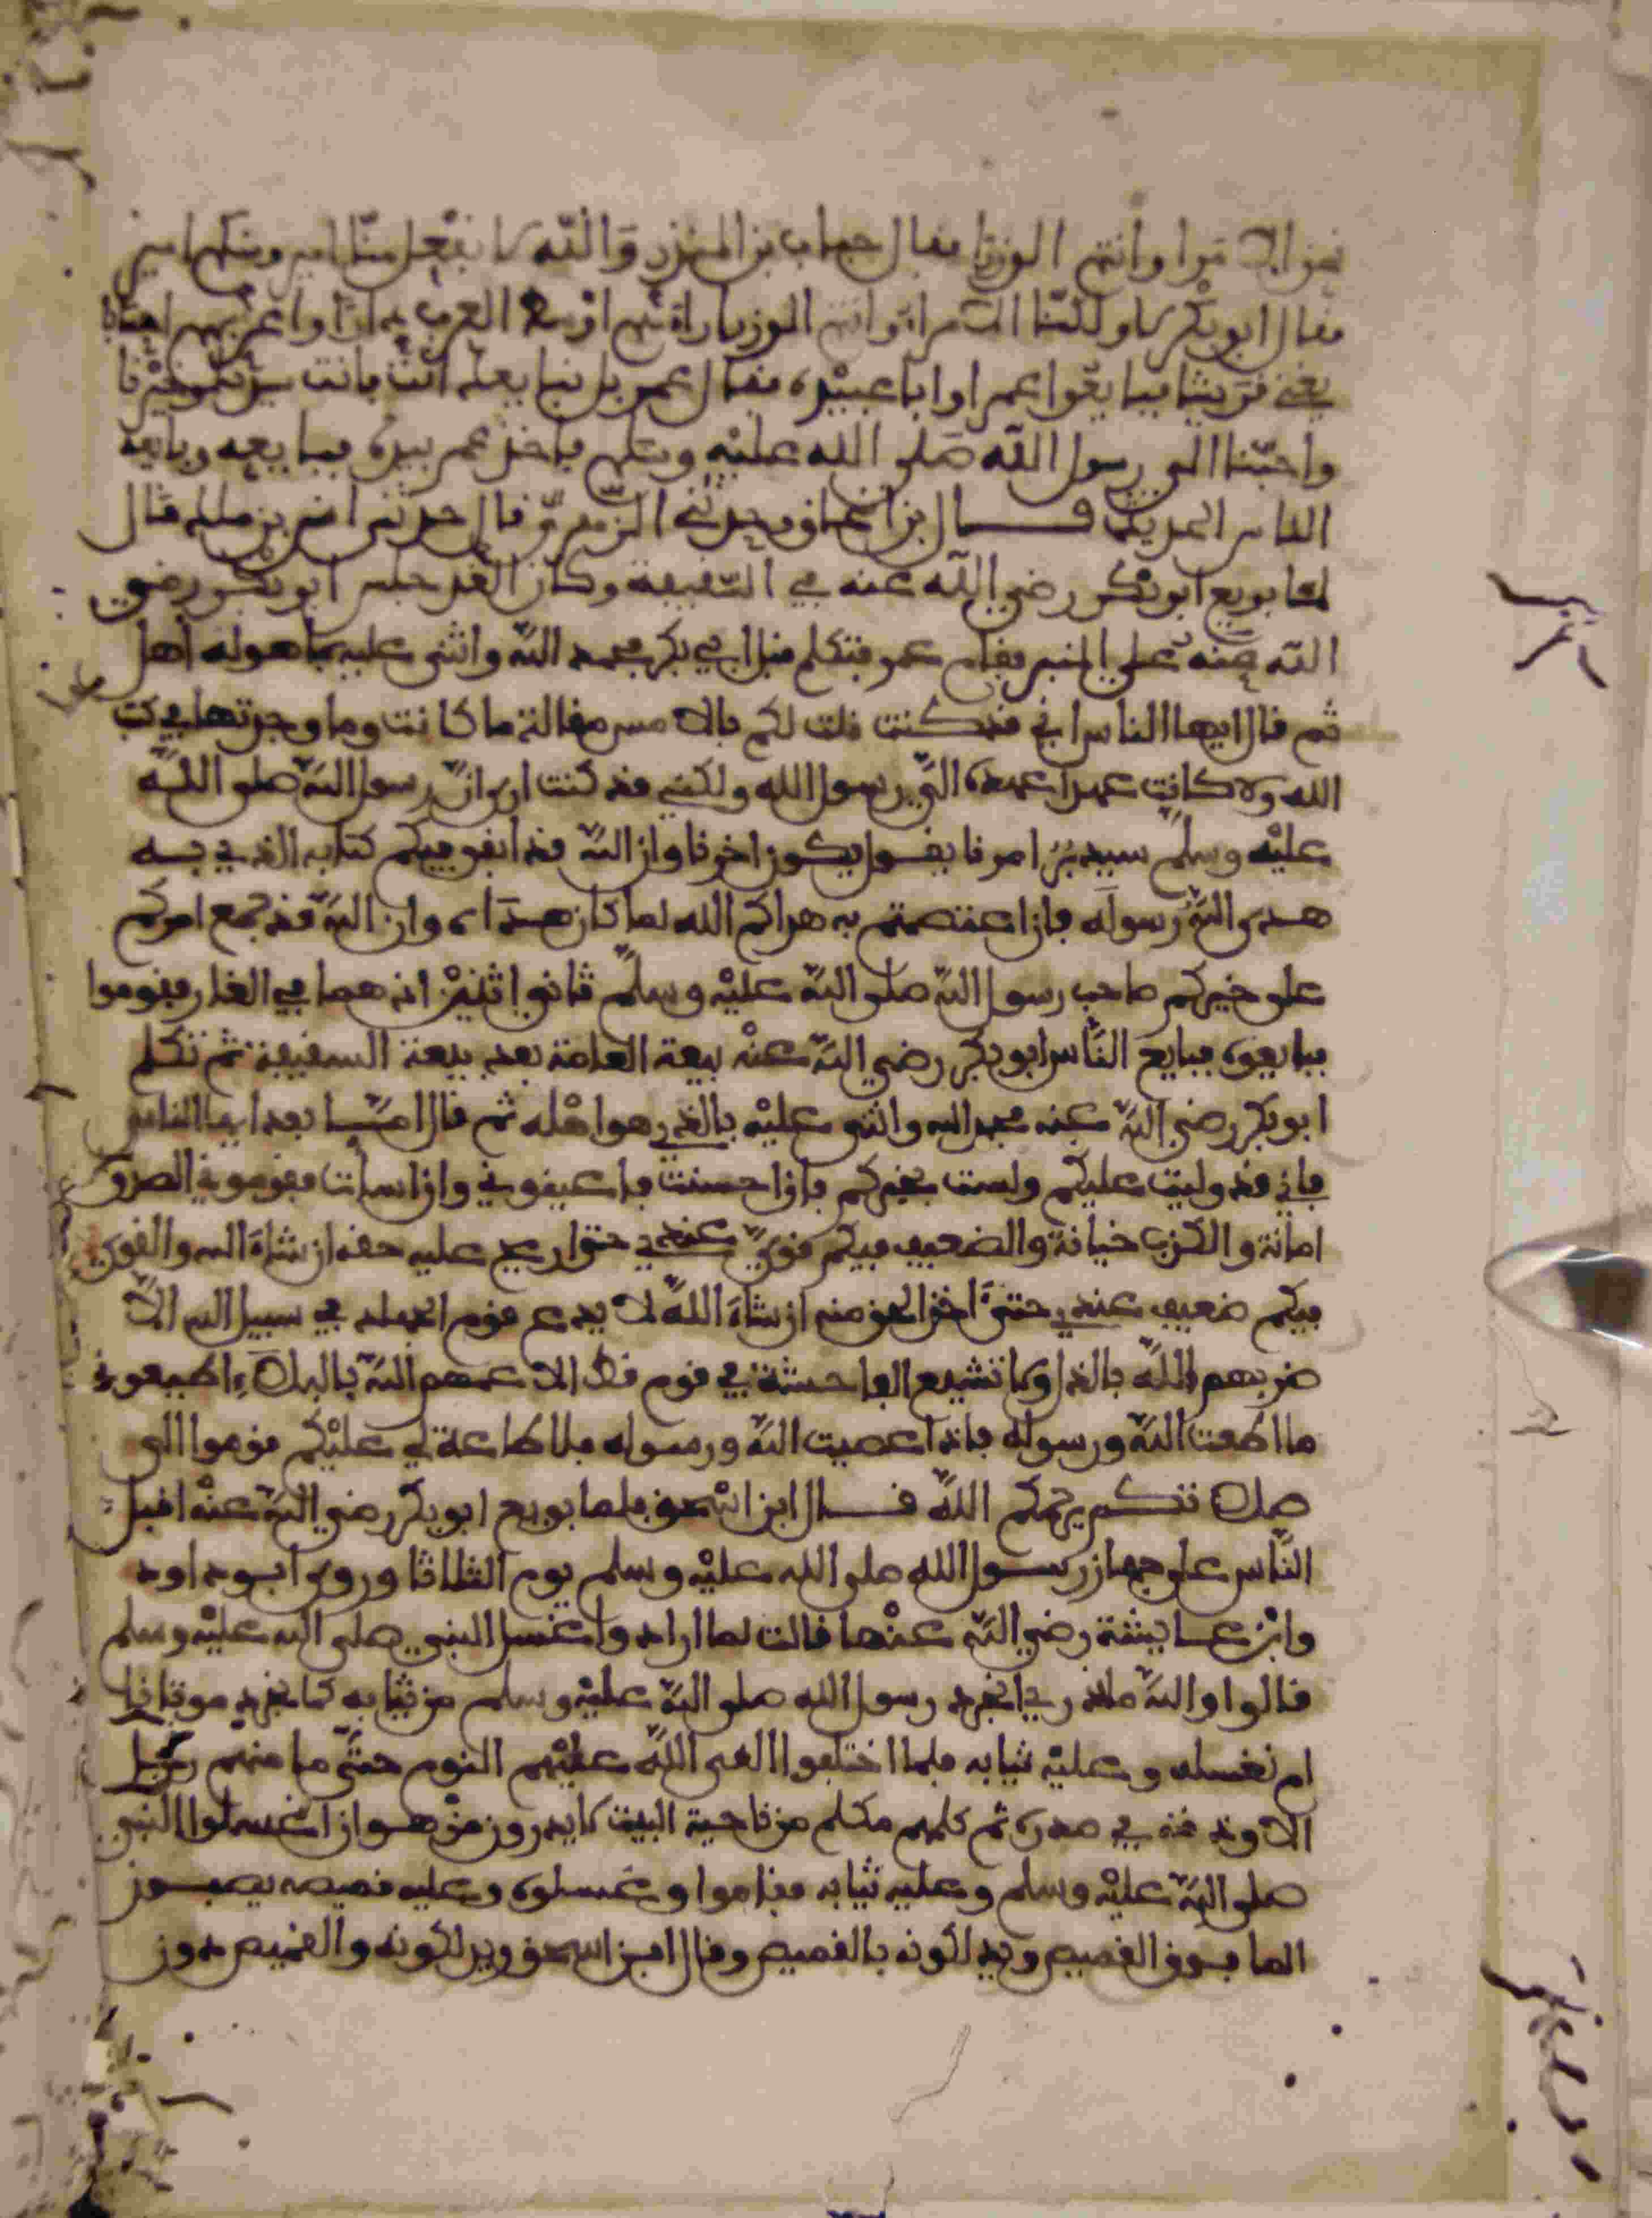 نحن الامرا وانتم الوزرا فقال حباب بن المنذر والله لا نفعل منا امير ومنكم امير
فقال ابو بكر لا ولكنا الامرا وانتم الوزرا هم اوسط العرب دارا واعربهم احسابا
يعني قريشا فبايعوا عمر او ابا عبيدة فقال عمر بل نبايعك انت فانت سيدنا وخيرنا
واحبنا الى رسول الله صلى الله عليه وسلم فاخذ عمر بيده فبايعه وبايعه
الناس الحديث قال بن اسحاق وحدثني الزهري قال حدثني انس بن ملك قال
لما بويع ابو بكر رضي الله عنه في السقيفة وكان الغد جلس ابو بكر رضي
الله عنه على المنبر فقام عمر فتكلم قبل ابي بكر فحمد الله واثنى عليه بما هو له أهل
ثم قال ايها الناس اني قد كنت قلت لكم بالامس مقالة ما كانت وما وجدتها في كتب
الله ولا كانت عهدا عهده الي رسول الله ولكني قد كنت ارى ان رسول الله صلى الله
عليه وسلم سيدبر امرنا يقول يكون اخرنا وان الله قد ابقى فيكم كتابه الذي به
هدى الله رسوله فان اعتصمتم به هداكم الله لما كان هداه وان الله قد جمع امركم
على خيركم صاحب رسول الله صلى الله عليه وسلم ثاني اثنين اذ هما في الغار فقوموا
فبايعوه فبايع الناس ابو بكر رضي الله عنه بيعة العامة بعد بيعة السقيفة ثم تكلم
ابو بكر رضي الله عنه فحمد الله واثنى عليه بالذي هو اهله ثم قال اما بعد ايها الناس
فاني قد وليت عليكم ولست بخيركم فان احسنت فاعينوني وان اسأت فقوموني الصدق
امانة والكذب خيانة والضعيف فيكم قوي عندي حتى اريح عليه حقه ان شاء الله والقوي
فيكم ضعيف عندي حتى اخذ الحق منه ان شاء الله لا يدع قوم الجهاد في سبيل الله الا
ضربهم الله بالذل ولا تشيع الفاحشة في قوم قط الا عمهم الله بالبلاء اطيعوني
ما اطعت الله ورسوله فاذا عصيت الله ورسوله فلا طاعة لي عليكم قوموا الى
صلاتكم يرحمكم الله قال ابن اسحق فلما بويع ابو بكر رضي الله عنه اقبل
الناس على جهاز رسول الله صلى الله عليه وسلم يوم الثلاثا وروى ابو داود
وابن عايشة رضي الله عنها قالت لما ارادوا غسل النبي صلى الله عليه وسلم
قالوا والله ما ندري انجرد رسول الله صلى الله عليه وسلم من ثيابه كما نجرد موتانا
ام نغسله وعليه ثيابه فلما اختلفوا القى الله عليهم النوم حتى ما منهم رجل
الا وذقنه في صدره ثم كلمهم مكلم من ناحية البيت لا يدرون من هو ان اغسلوا النبي
صلى الله عليه وسلم وعليه ثيابه فقاموا وغسلوه وعليه قميصه يصبون
الما فوق القميص ويدلكونه بالقميص وقال ابن اسحق ويدلكونه والقميص دون